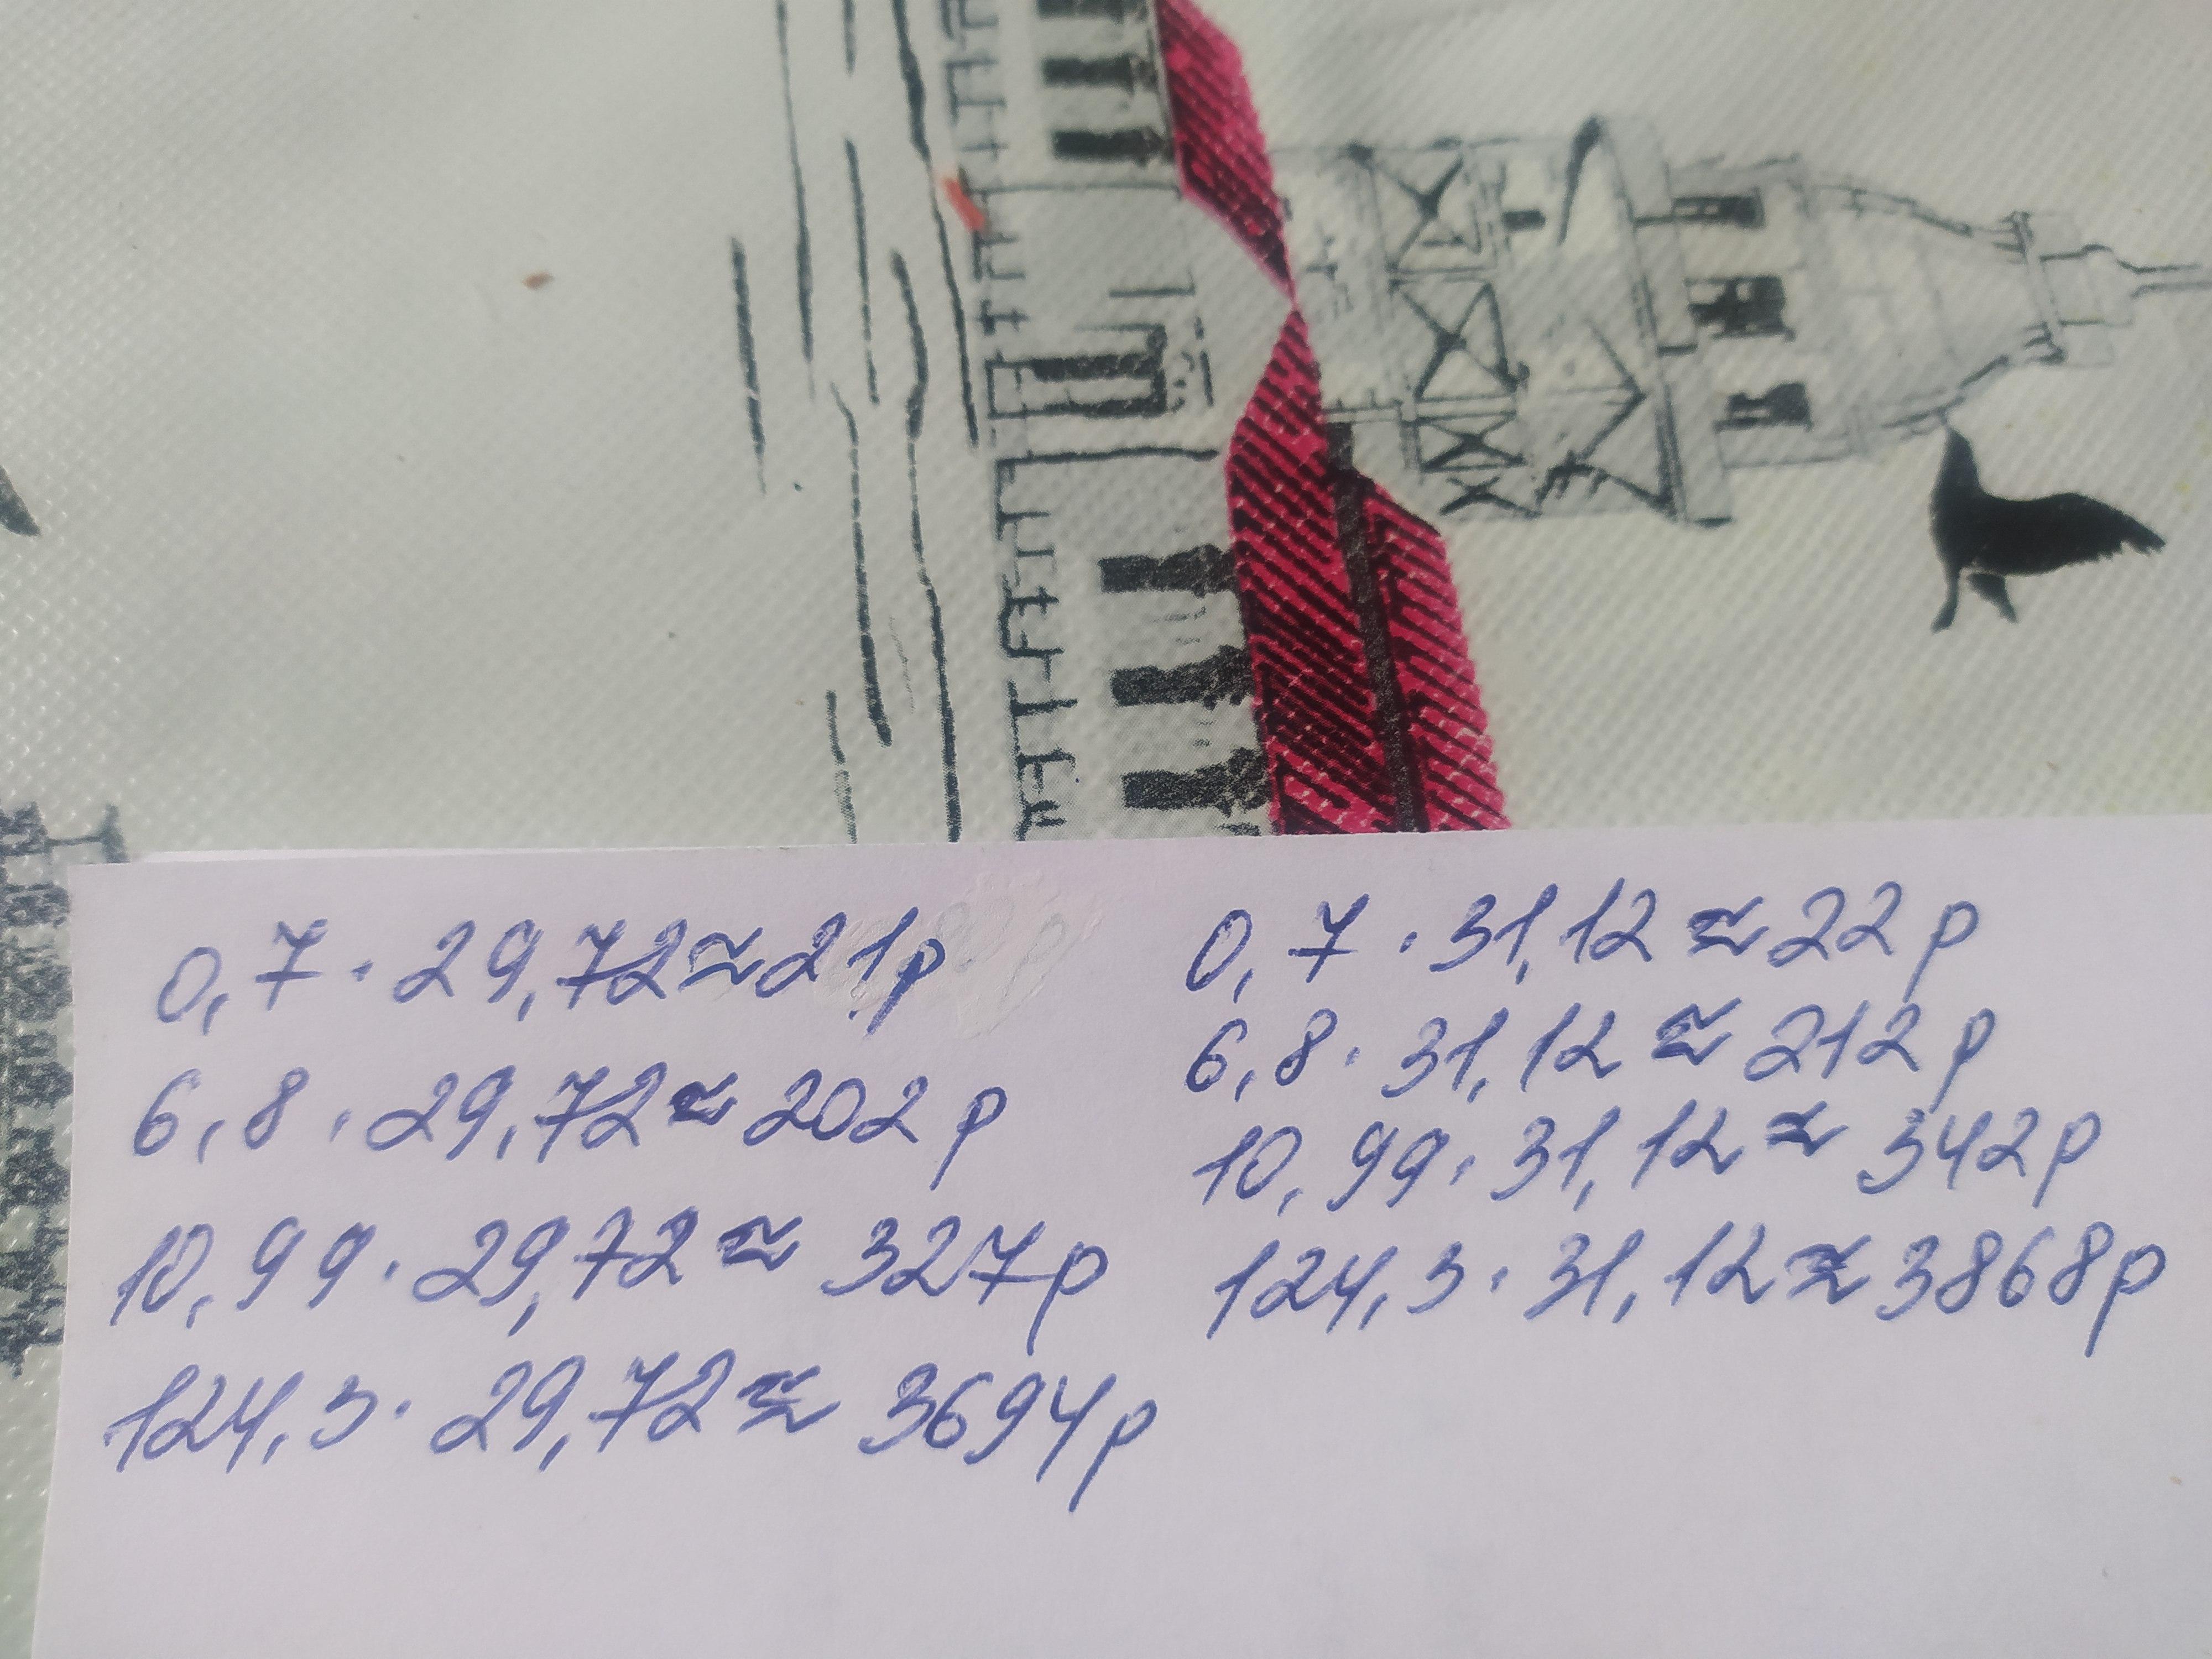 0,7 · 29,72 ≈ 21р
6,8 · 29,72 ≈ 202р
10,99 · 29,72 ≈ 327р
124,3 · 29,72 ≈ 3694р
0,7 · 31,12 ≈ 22р
6,8 · 31,12 ≈ 212р
10,99 · 31,12 ≈ 342р
124,3 · 31,12 ≈ 3868р